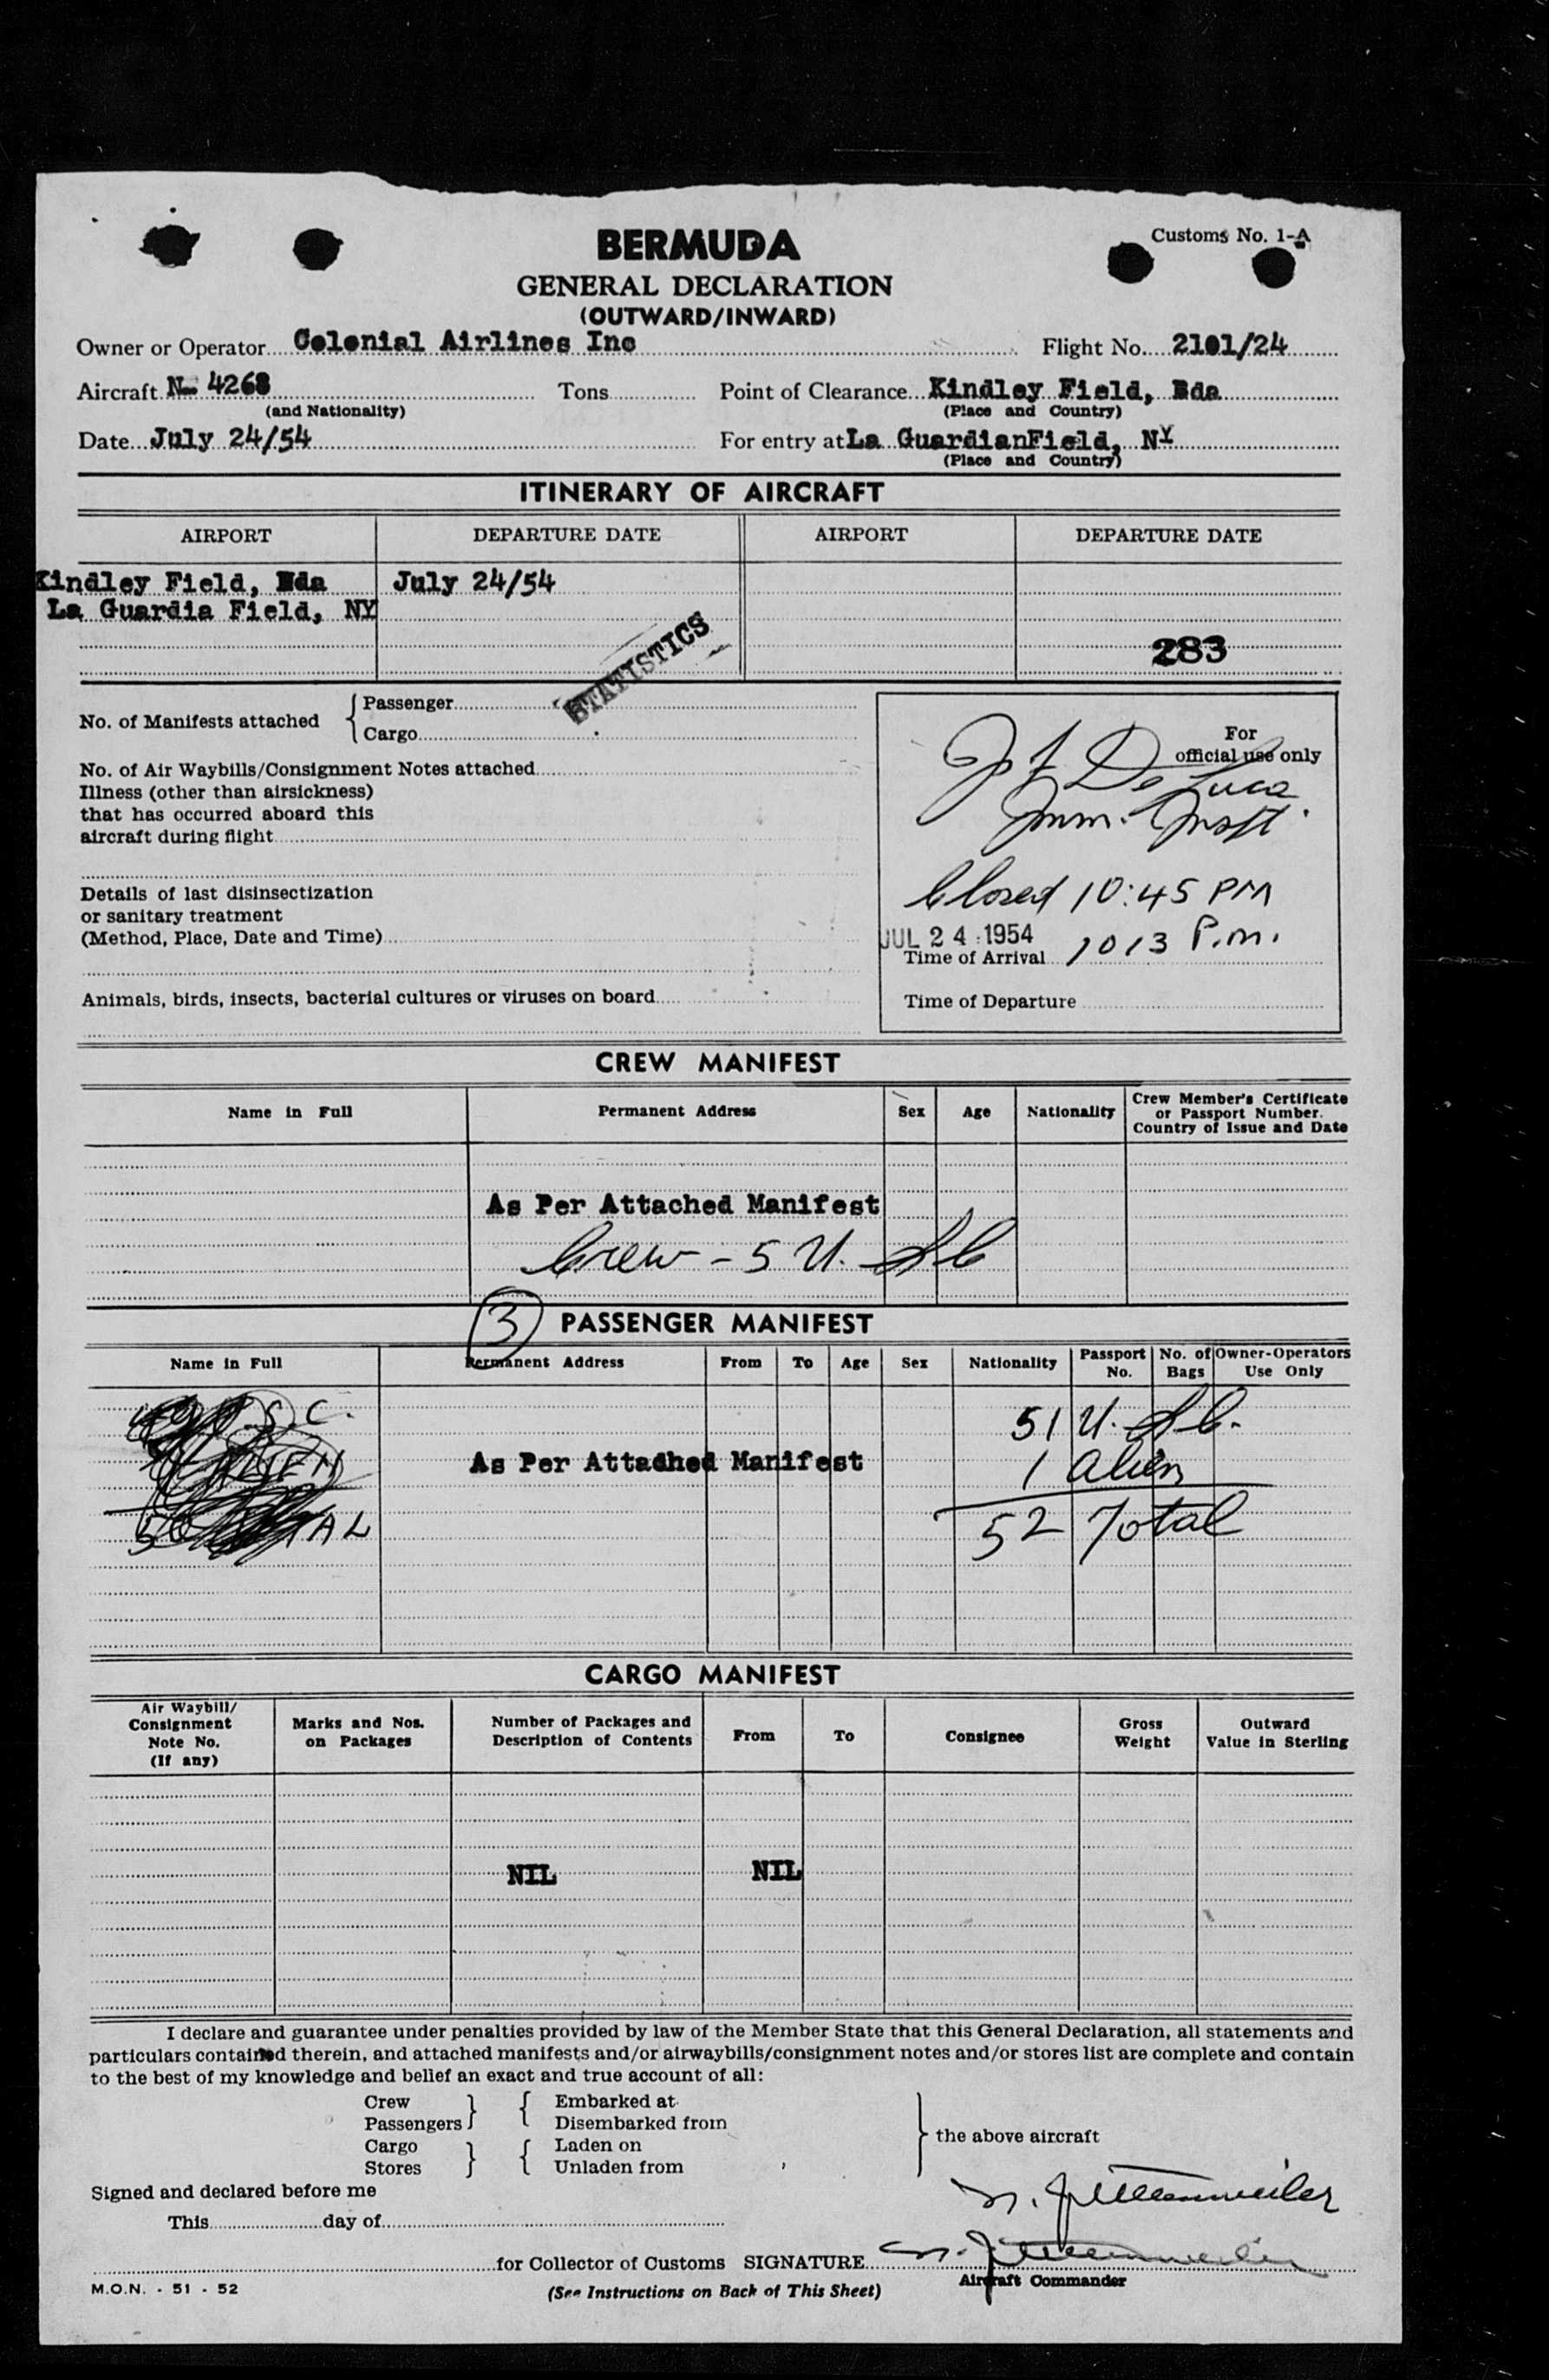 Customs No. 1-A
BERMUDA
GENERAL DECLARATION
(OUTWARD/INWARD)
Owner or Operator Colonial Airlines Inc Flight No. 2101/24
Aircraft N 4268 Tons Point of Clearance Kindley Field, Bda
(and Nationality) (Place and Country)
Date July 24/54 For entry at La GuardianField, NY
(Place and Country)
ITINERARY OF AIRCRAFT
AIRPORT DEPARTURE DATE AIRPORT DEPARTURE DATE
Kindley Field, Bda July 24/54
La Guardia Field, NY
283
STATISTICS
No. of Manifests attached
Passenger
Cargo
No. of Air Waybills/Consignment Notes attached
Illness (other than airsickness)
that has occurred aboard this
aircraft during flight
Details of last disinsectization
or sanitary treatment
(Method, Place, Date and Time)
Animals, birds, insects, bacterial cultures or viruses on board
For
official use only
De Luca
Imm. Inspt.
Closed 10:45 PM
JUL 24 1954
Time of Arrival 1013 P.m.
Time of Departure
CREW MANIFEST
Name in Full Permanent Address Sex Age Nationality Crew Member's Certificate
or Passport Number.
Country of Issue and Date
As Per Attached Manifest
Crew - 5 U.
3 PASSENGER MANIFEST
Name in Full Permanent Address From To Age Sex Nationality Passport No. No. of Bags Owner-Operators Use Only
51 U.
As Per Attached Manifest
1 Alien
52 Total
CARGO MANIFEST
Air Waybill/
Consignment
Note No.
(If any)
Marks and Nos.
on Packages
Number of Packages and
Description of Contents
From To Consignee
Gross
Weight
Outward
Value in Sterling
NIL NIL
I declare and guarantee under penalties provided by law of the Member State that this General Declaration, all statements and
particulars contained therein, and attached manifests and/or airwaybills/consignment notes and/or stores list are complete and contain
to the best of my knowledge and belief an exact and true account of all:
Crew Embarked at
Passengers Disembarked from
the above aircraft
Cargo Laden on
Stores Unladen from
Signed and declared before me
This day of
for Collector of Customs SIGNATURE
Aircraft Commander
M.O.N. - 51 - 52
(See Instructions on Back of This Sheet)